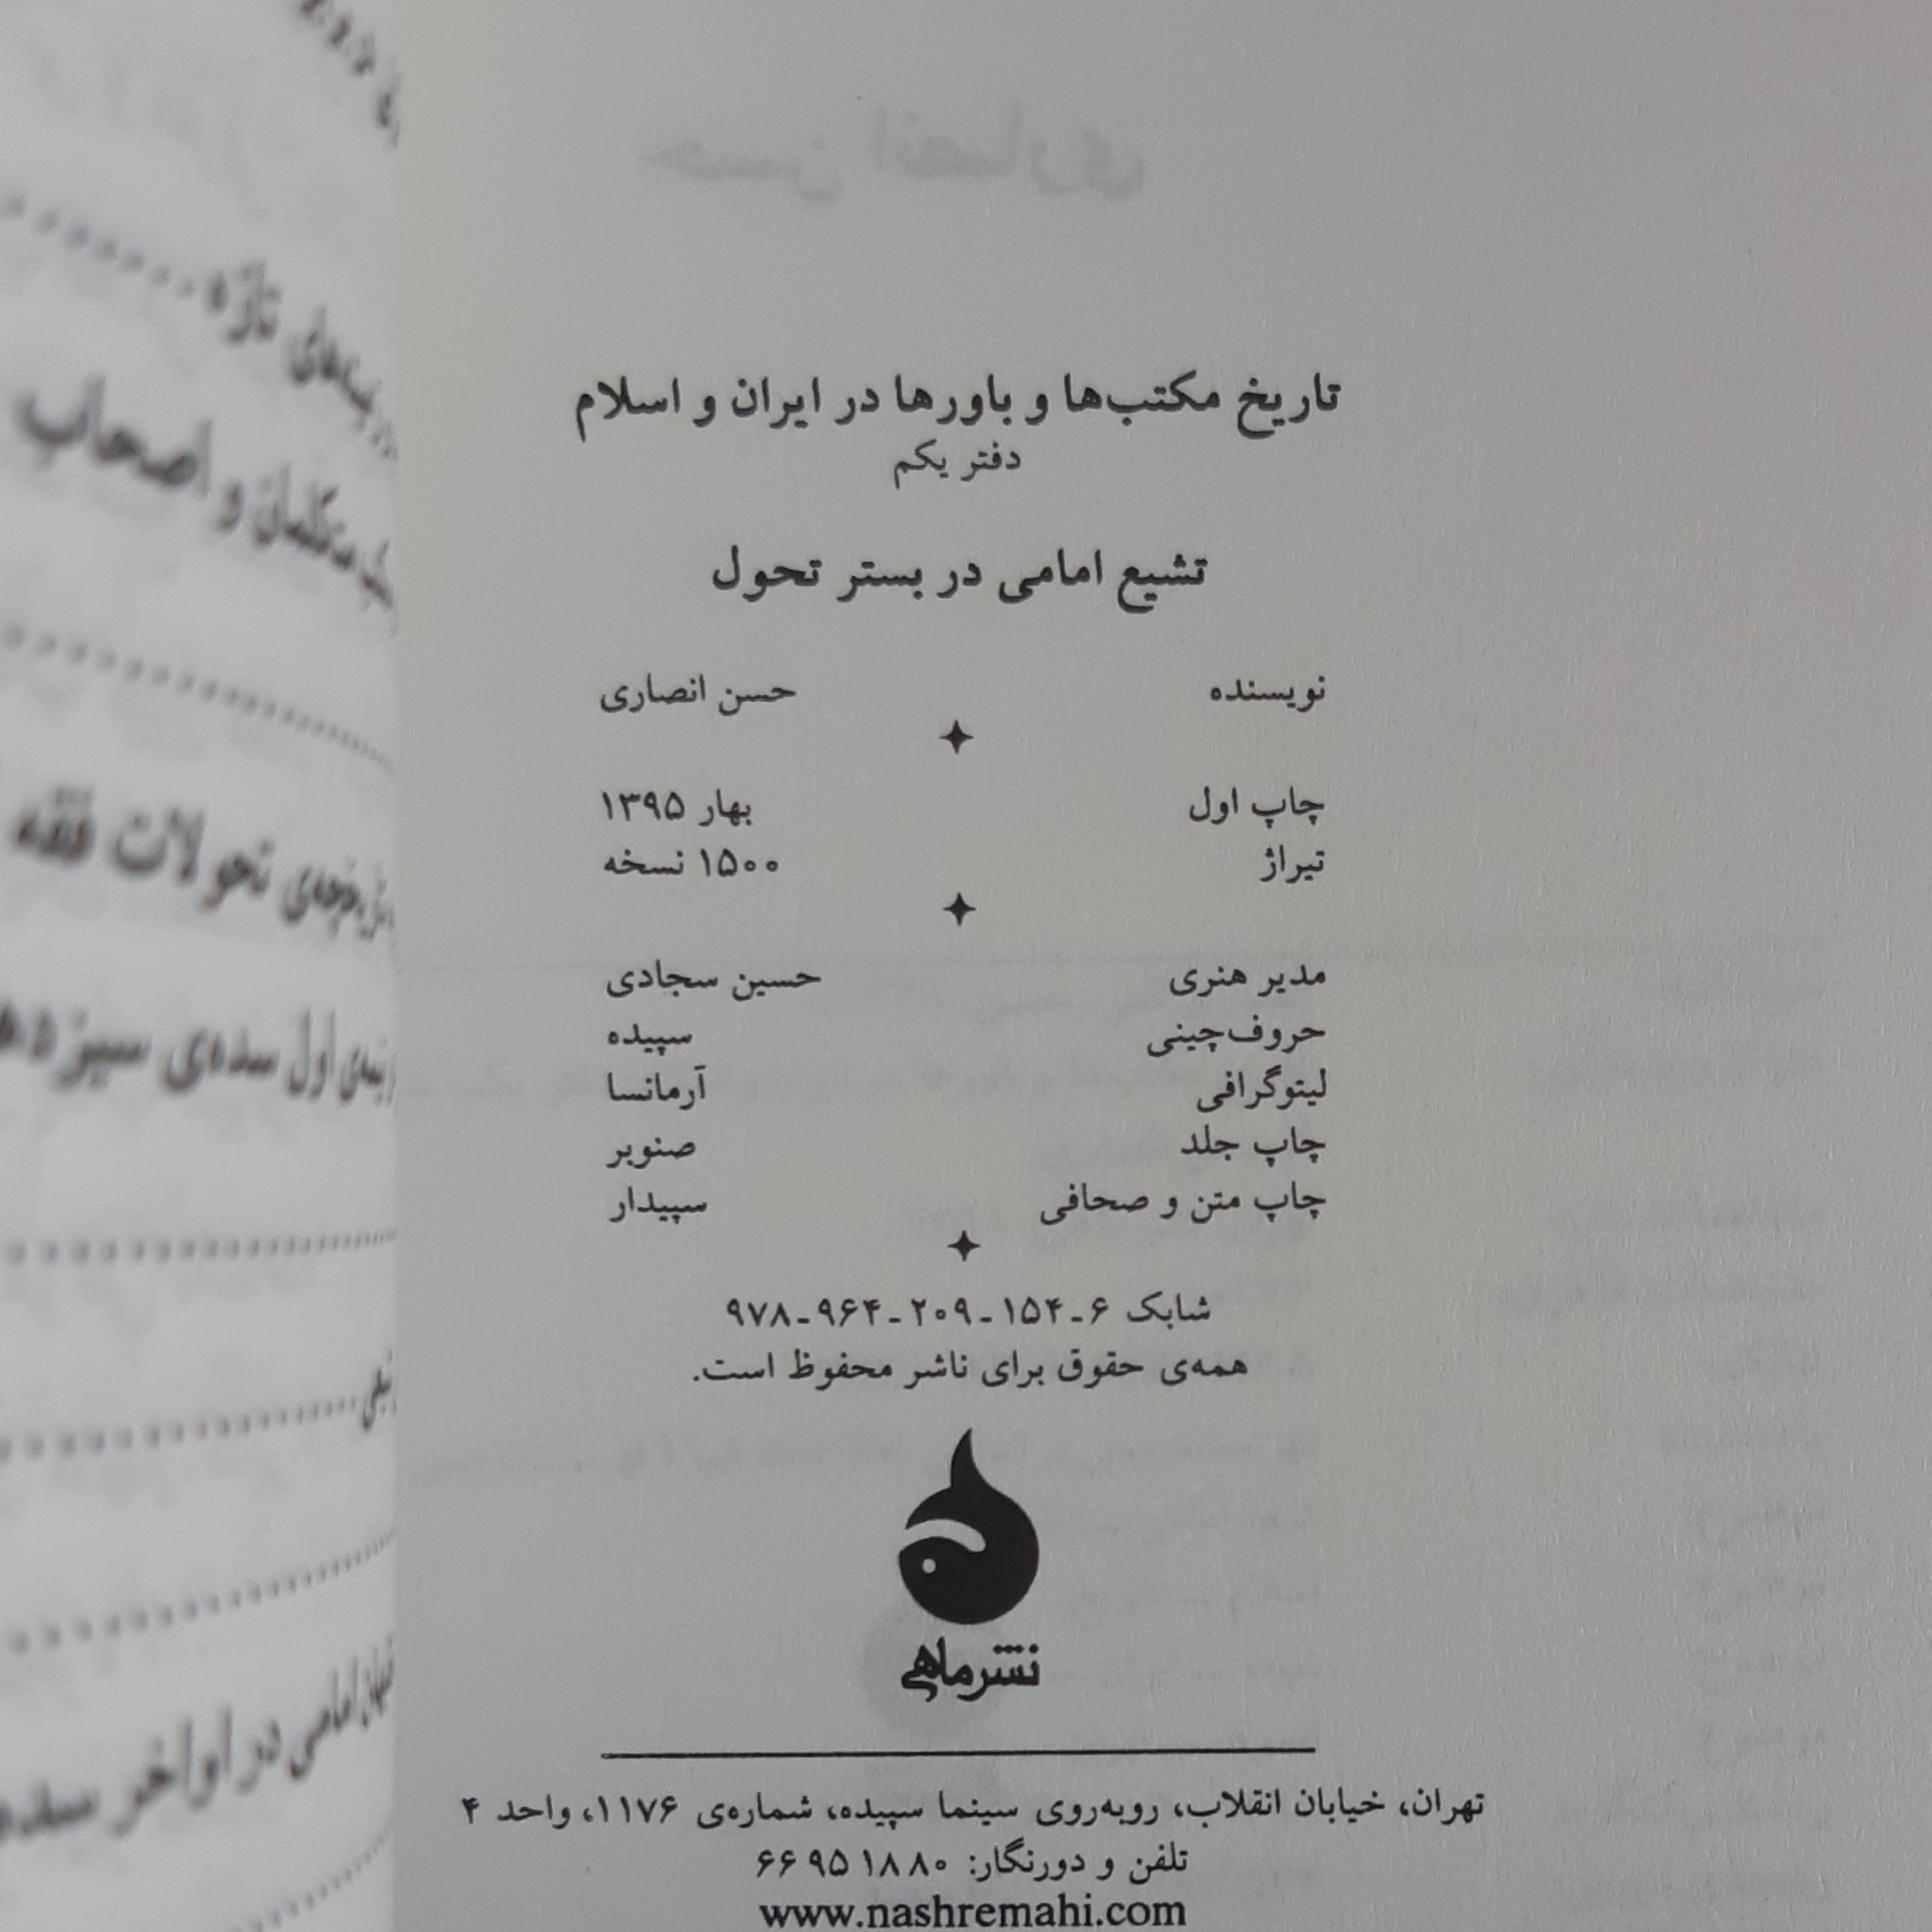 تاریخ مکتب‌ها و باورها در ایران و اسلام
دفتر یکم
تشیع امامی در بستر تحول
نویسنده حسن انصاری
چاپ اول بهار ۱۳۹۵
تیراژ ۱۵۰۰ نسخه
مدیر هنری حسین سجادی
حروف‌چینی سپیده
لیتوگرافی آرمانسا
چاپ جلد صنوبر
چاپ متن و صحافی سپیدار
شابک ۶ـ۱۵۴ـ۲۰۹ـ۹۶۴ـ۹۷۸
همه‌ی حقوق برای ناشر محفوظ است.
نشرماهی
تهران، خیابان انقلاب، روبه‌روی سینما سپیده، شماره‌ی ۱۱۷۶، واحد ۴
تلفن و دورنگار: ۶۶ ۹۵ ۱۸ ۸۰
www.nashremahi.com
های تازه
متکلمان و اصحاب
تاریخچه‌ی تحولات فقه
نیمه‌ی اول سده‌ی سیزدهم
امامی در اواخر سده